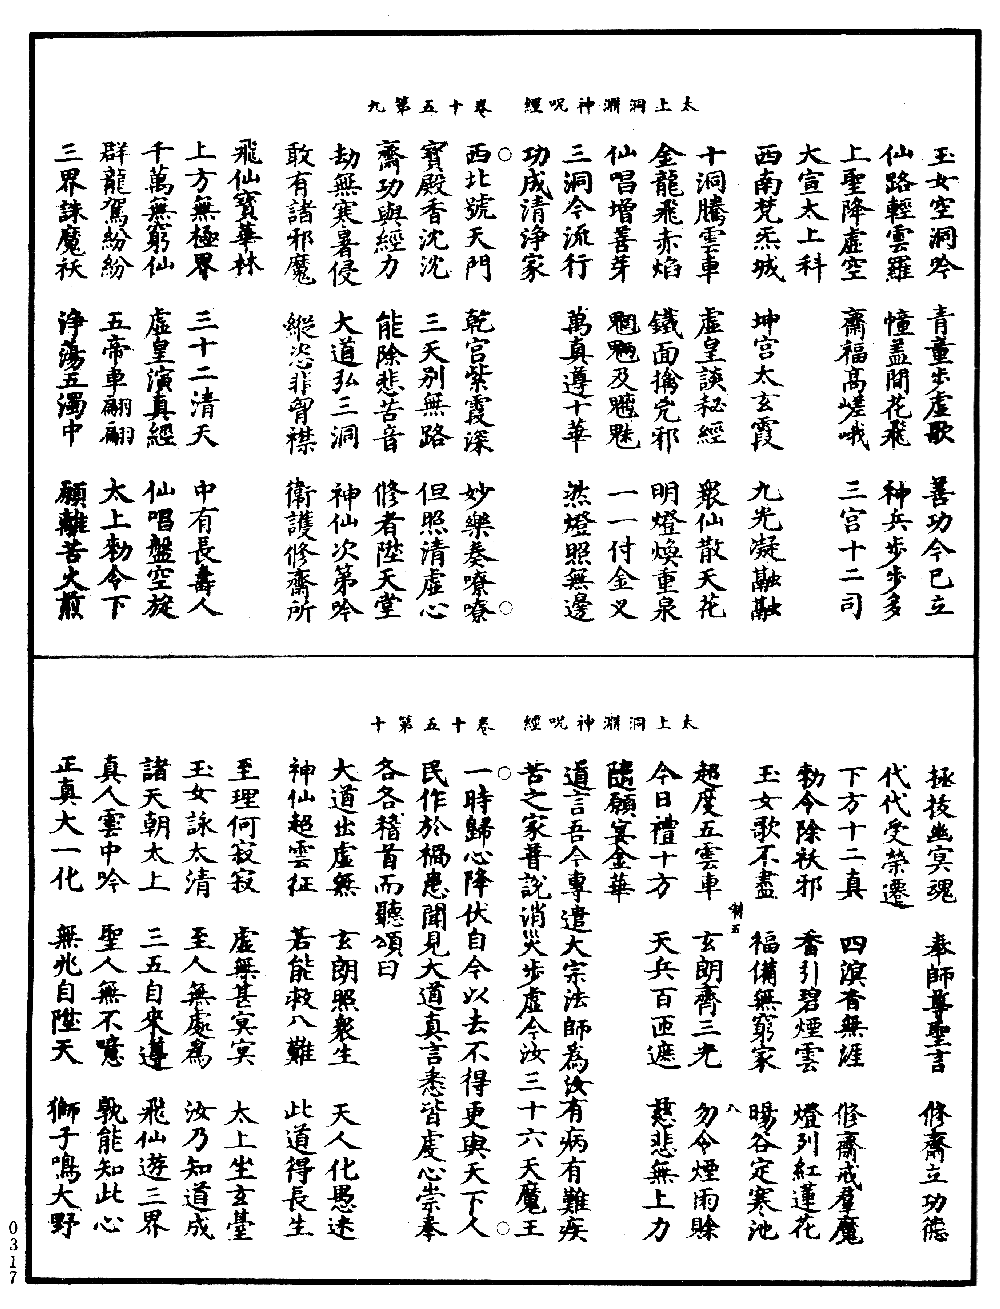 太上洞淵神呪經　卷十五第九
玉女空洞吟　青童步虛歌　善功今已立
仙路輕雲羅　幢蓋間花飛　神兵步步多
上聖降虛空　齋福高嵯峨　三宮十二司
大宣太上科
西南梵炁城　坤宮太玄霞　九光凝融融
十洞騰雲車　虛皇談秘經　衆仙散天花
金龍飛赤焰　鐵面擒兇邪　明燈煥重泉
仙唱增善芽　魍魎及魑魅　一一付金叉
三洞今流行　萬真遵十華　然燈照無邊
功成清淨家
西北號天門　乾宮紫霞深　妙樂奏嘹嘹
寶殿香沈沈　三天別無路　但照清虛心
齋功與經力　能除悲苦音　修者陞天堂
劫無寒暑侵　大道弘三洞　神仙次第吟
敢有諸邪魔　縱恣非胷襟　衛護修齋所
飛仙寶華林
上方無極界　三十二清天　中有長壽人
千萬無窮仙　虛皇演真經　仙唱盤空旋
群龍駕紛紛　五帝車翩翩　太上勑令下
三界誅魔祅　淨蕩五濁中　願離苦火煎
太上洞淵神呪經　卷十五第十
拯技幽冥魂　奉師尊聖言　修齋立功德
代代受榮遷
下方十二真　四溟杳無涯　修齋戒羣魔
勑令除祅邪　香引碧煙雲　燈列紅蓮花
玉女歌不盡　福備無窮家　暘谷定寒池
超度五雲車　玄朗齊三光　勿令煙雨賒
今日禮十方　天兵百匝遮　慈悲無上力
隨願宴金華
道言吾今專遣大宗法師為汝有病有難疾
苦之家普說消災步虛令汝三十六天魔王
一時歸心降伏自今以去不得更與天下人
民作於禍患聞見大道真言悉皆虔心崇奉
各各稽首而聽頌曰
大道出虛無　玄朗照衆生　天人化愚迷
神仙超雲征　若能救八難　此道得長生
至理何寂寂　虛無甚冥冥　太上坐玄臺
玉女詠太清　至人無處為　汝乃知道成
諸天朝太上　三五自來遵　飛仙遊三界
真人雲中吟　聖人無不噫　孰能知此心
正真大一化　無兆自陞天　獅子鳴大野
0317